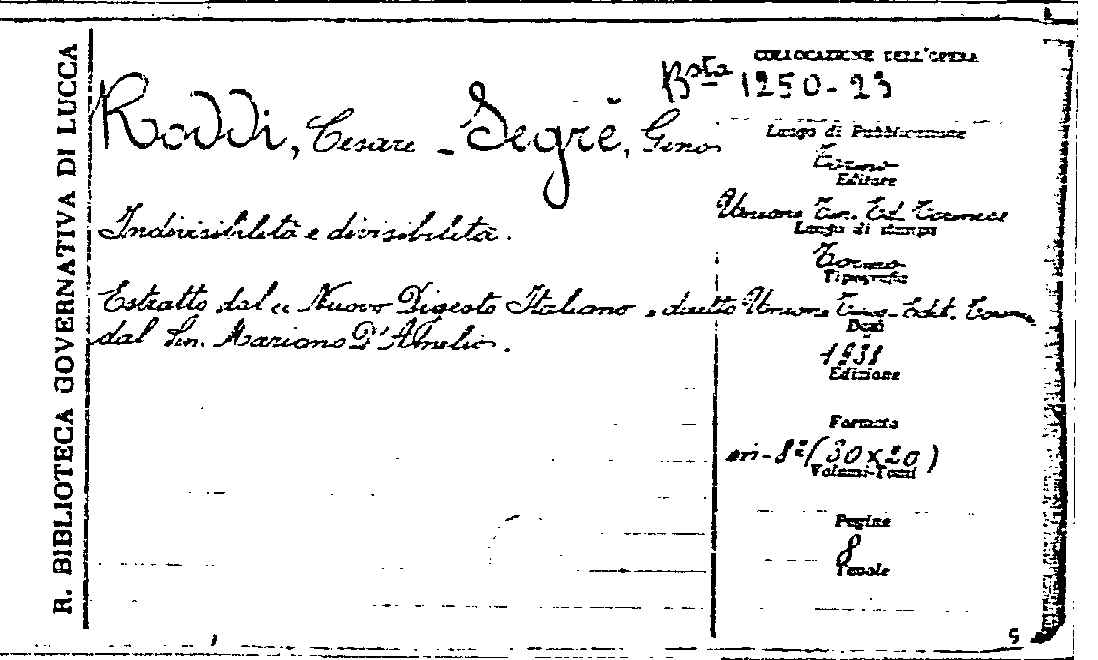 R. BIBLIOTECA GOVERNATIVA DI LUCCA
COLLOCAZIONE DELL'OPERA
Bsta 1250-23
Roddi, Cesare - Segrè, Gino
Indivisibilità e divisibilità.
Estratto dal « Nuovo Digesto Italiano, diretto
dal Sen. Mariano D'Amelio.
Luogo di Pubblicazione
Torino
Editore
Unione Tip. Ed. Torinese
Luogo di stampa
Torino
Tipografia
Unione Tipo-Edit. Torinese
Dagli
1938
Edizione
Formato
in-8° (30x20)
Volumi-Tomi
Pagine
8
Tavole
5